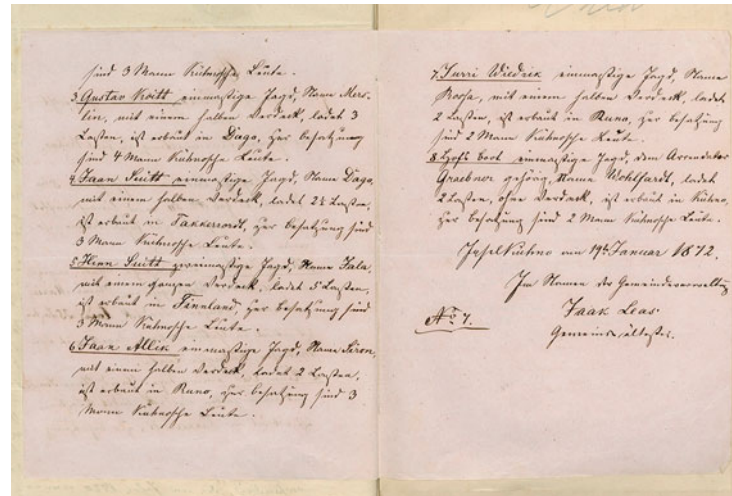 sind 3 Mann Kühnosche Leute.
3, Gustav Koitt einmastige Jagd, Name Mers-
lin, mit einem halben Verdeck, ladet 3
Lasten, ist erbaut in Dago, zur besatzung
sind 4 Mann Kühnosche Leute.
4, Jaan Suitt einmastige Jagd, Name Dago,
mit einem halben Verdeck, ladet 2½ Lasten,
ist erbaut in zur besatzung sind
3 Mann Kühnosche Leute.
5, Suitt zweimastige Jagd, Name
mit einem ganzen Verdeck, ladet 5 Lasten,
ist erbaut in Finnland, zur besatzung sind
3 Mann Kühnosche Leute.
6, Jaan Allik einmastige Jagd, Name
mit einem halben Verdeck, ladet 2 Lasten,
ist erbaut in Runo, zur besatzung sind 3
Mann Kühnosche Leute.
7, Jurri einmastige Jagd, Name
mit einem halben Verdeck, ladet
2 Lasten, ist erbaut in Runo, zur besatzung
sind 2 Mann Kühnosche Leute.
8, Hofs boot einmastige Jagd, dem Arrendator
Graebner gehörig, Name Wohlfardt, ladet
2 Lasten, ohne Verdeck, ist erbaut in Kühno,
zur besatzung sind 2 Mann Kühnosche Leute.
Insel Kuhno am 19t Januar 1872.
Im Namen der Gemeindeverwaltung
Jaak Leas
Gemeindeältester.
No 7.